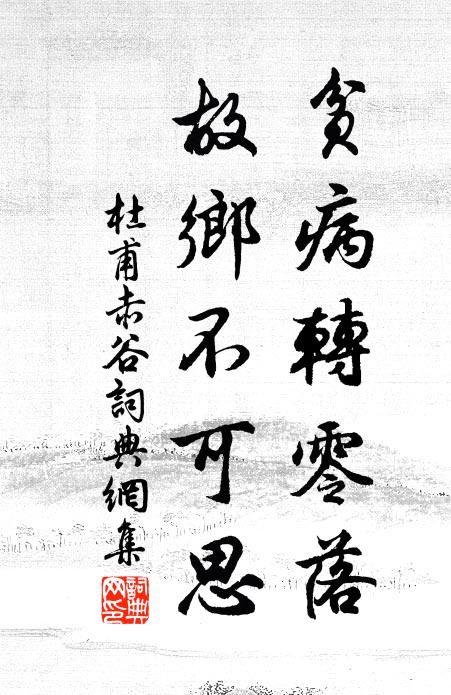 貧病轉零落
故鄉不可思
杜甫赤谷詞典網集
詞典网印